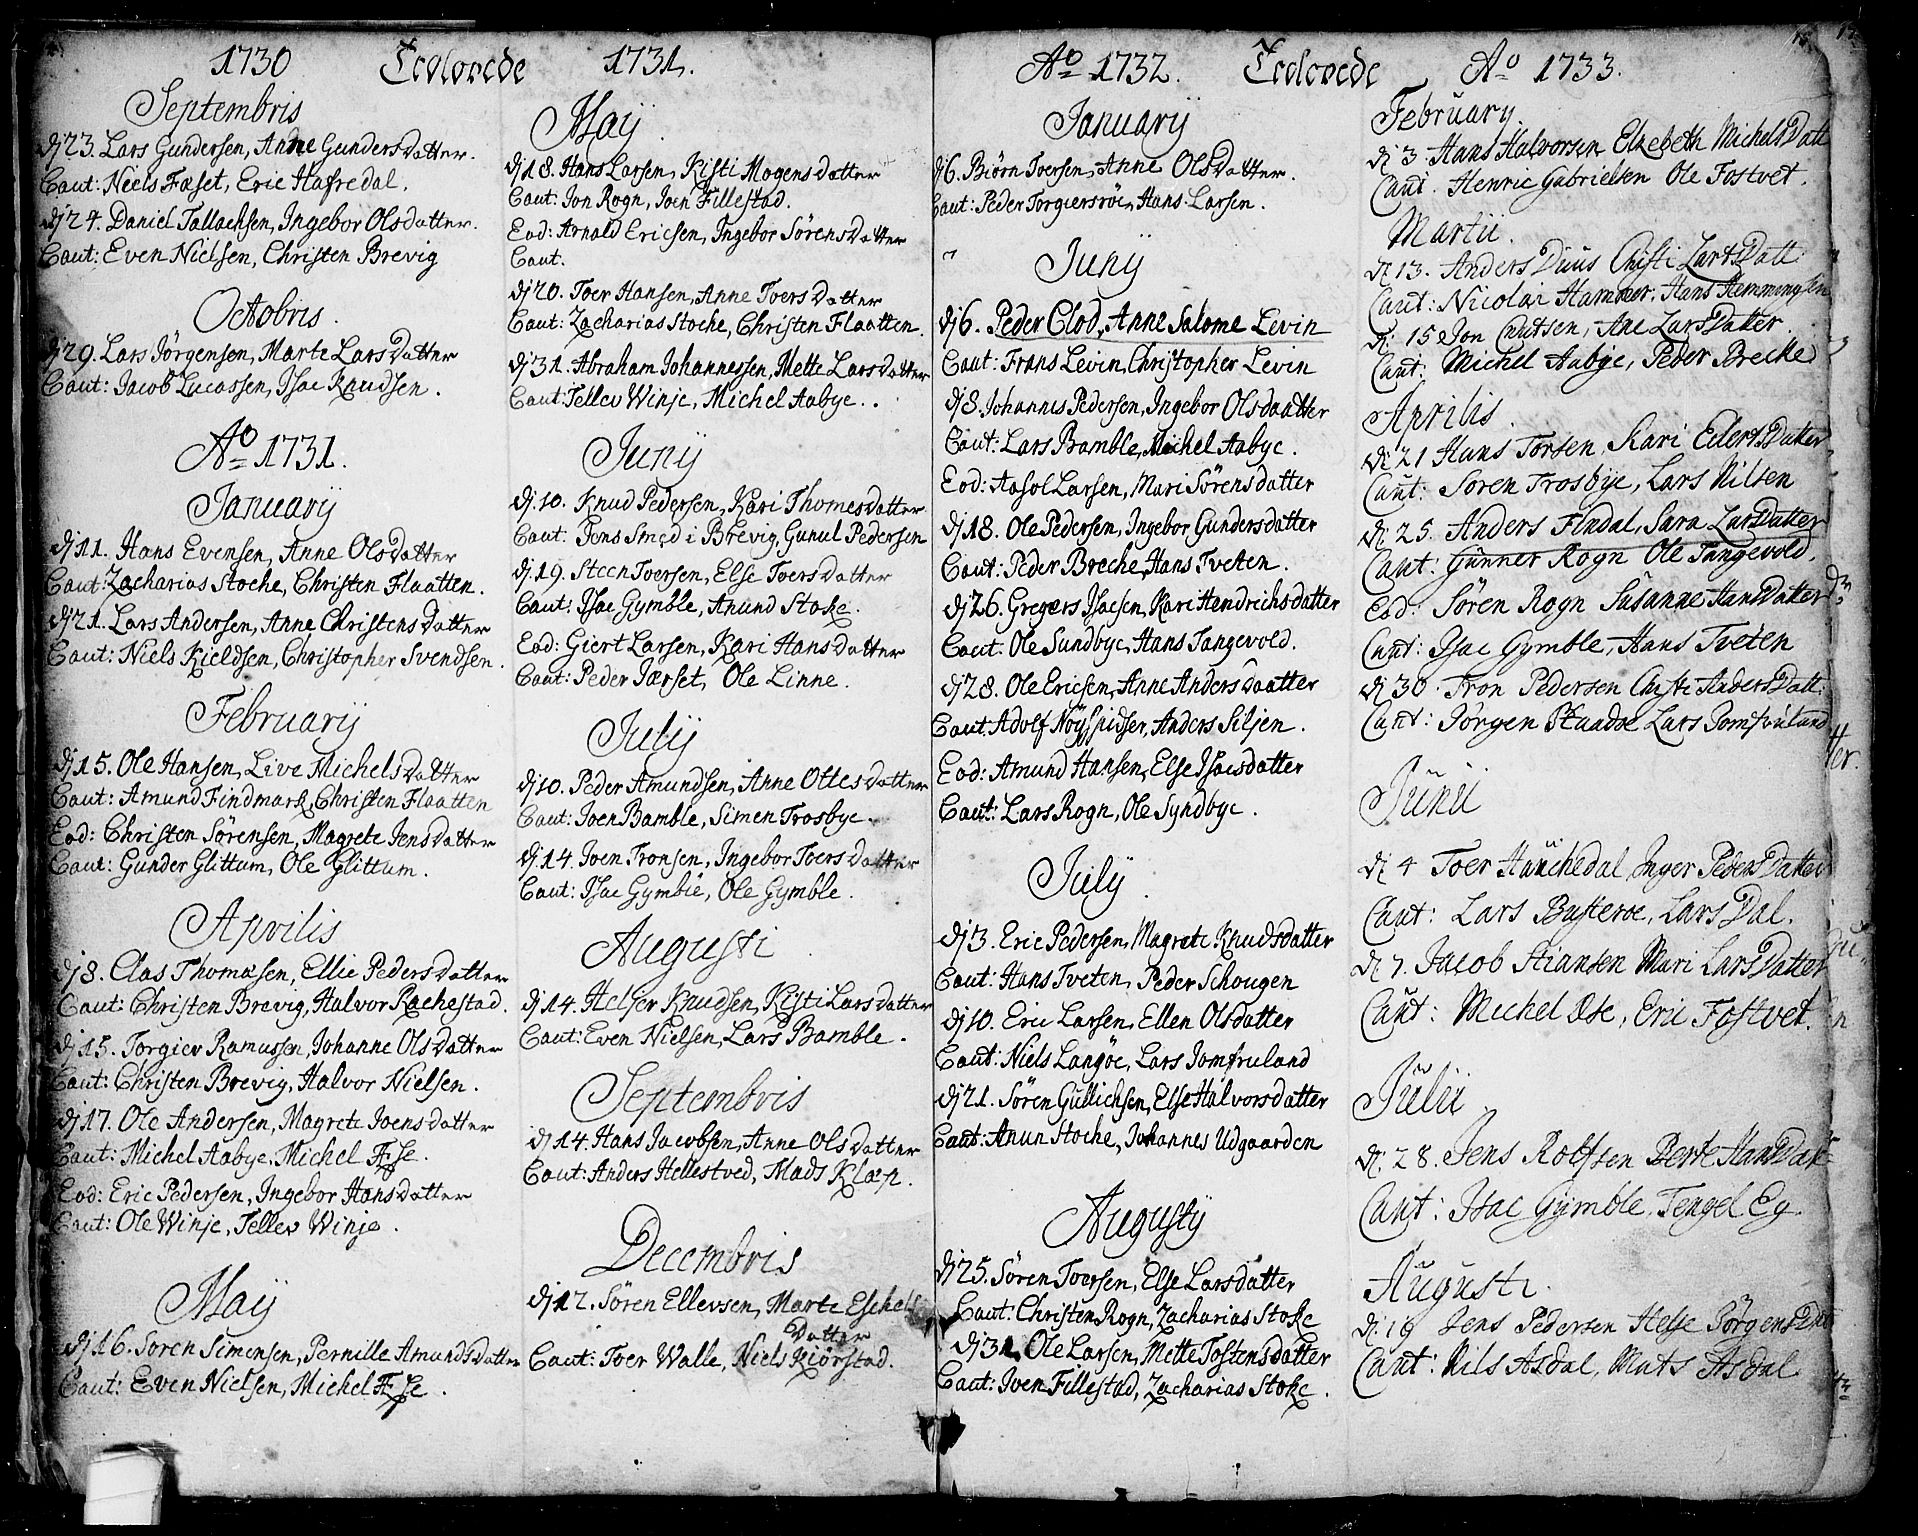 1730 Trolovede 1731.
Septembris
dj 23. Lars Gundersen, Anne Gunders datter.
Caut: Niels Fæset, Eric Hafredal.
dj 24. Daniel Tallachsen, Ingebor Olsdatter.
Caut: Even Nielsen, Christen Brevig
Octobris.
dj 29. Lars Jörgensen, Marte Lars Datter
Caut: Jacob Lucassen, Isac Knudsen.
Ao 1731.
Januarij
dj 11. Hans Evensen, Anne Olsdatter
Caut: Zacharias Stoche, Christen Flaatten.
dj 21. Lars Andersen, Anne Christens Datter
Caut: Niels Kieldsen, Christopher Svendsen.
Februarij
dj 15. Ole Hansen, Live Michels datter
Caut: Amund Findmark, Christen Flaatten
Eod: Christen Sörensen, Magrete Jens datter
Caut: Gunder Glittum, Ole Glittum.
Aprilis
dj 8. Clas Thomasen, Ellie Peders datter
Caut: Christen Brevig, Halvor Rachestad.
dj 15. Torgier Ramussen, Johanne Ols datter
Caut: Christen Brevig, Halvor Nielsen.
dj 17. Ole Andersen, Magrete Joens datter
Caut: Michel Aabye, Michel Æse.
Eod: Eric Pedersen, Ingebor Hans datter
Caut: Ole Winje, Tellev Winje.
Maij
dj 16. Soren Simensen, Pernille Amunds Datter
Caut: Even Nielsen, Michel Æse.
Maij
dj 18. Hans Larsen, Kisti Mogens datter
Caut: Jon Rogn, Joen Fillestad.
Eod: Arnold Ericsen, Ingebor Sörens datter
Caut.
dj 20. Toer Hansen, Anne Toers datter
Caut: Zacharias Stoche, Christen Flaatten.
dj 31. Abraham Johannessen, Mette Lars datter
Caut: Tellev Winje, Michel Aabye.
Junij
dj 10. Knud Pedersen, Kari Thomes datter
Caut: Jens Smed i Brevig, Gunul Pedersen
dj. 19. Steen Toersen, Else Toers datter
Caut: Isac Gymble, Anund Stoke.
Eod: Giert Larsen, Kari Hans datter
Caut: Peder Jærset, Ole Linne.
Julij
dj 10. Peder Amundsen, Anne Ottes datter
Caut: Joen Bamble, Simen Trosbye.
dj 14. Joen Tronsen, Ingebor Toers datter
Caut: Isac Gymble, Ole Gymble.
Augusti
dj 14. Heljer Knudsen, Kisti Lars datter
Caut: Even Nielsen, Lars Bamble.
Septembris
dj 14. Hans Jacobsen, Anne Ols datter
Caut: Anders Hellestved, Mads Klæp.
Decembris
dj 12. Sören Ellevsen, Marte Eschels
Datter
Caut: Toer Walle, Niels Kiörstad.
Ao 1732. Trolovede Ao 1733.
Januarij
dj 6. Biörn Toersen, Anne Ols Datter.
Caut: Peder Torgiersröe, Hans Larsen.
Junij
dj 6. Peder Clod, Anne Salome Levin
Caut: Frans Levin, Christopher Levin
dj 8. Johannes Pedersen, Ingebor Olsdaatter
Caut: Lars Bamble, Michel Aabye.
Eod: Aasol Larsen, Mari Sörensdatter
dj 18. Ole Pedersen, Ingebor Gundersdatter
Caut: Peder Breche, Hans Tveten.
dj 26. Gregers Isacsen, Kari Hendrichsdatter
Caut: Ole Sundbye, Hans Tangevold.
dj 28. Ole Ericsen, Anne Anders daatter
Caut. Adolf Nöyspidser, Anders Siljen.
Eod: Amund Hansen, Else Isacsdatter
Caut: Lars Rogn, Ole Syndbye.
Julij
dj 3. Eric Pedersen, Magrete Knudsdatter
Caut: Hans Tveten, Peder Schougen
dj 10. Eric Larsen, Ellen Olsdatter
Caut: Niels Langöe, Lars Jomfruland
dj 21. Sören Gullichsen, Else Halvorsdatter
Caut: Anun Stoche, Johannes Udgaarden
Augustij
dj 25. Sören Toersen, Else Larsdatter
Caut: Christen Rogn, Zacharias Stoke
dj 31. Ole Larsen, Mette Tostensdatter
Caut: Joen Fillestad, Zacharias Stoke.
February.
di 3. Hans Halvorsen Elzebeth Michels Datt
Caut. Henric Gabrielsen Ole Fostvet.
Martii.
di 13. Anders Duus Christi LarsDatt
Caut: Nicolai Hammer, Hans Hemmingsen
di: 15 Jon Cnutsen, Ane LarsDatter.
Caut: Michel Aabye, Peder Brecke
Aprilis.
di 21 Hans Torsen, Kari EdertsDatter
Caut: Soren Trosbye, Lars Nilsen
di 25. Anders Findal, Sara LarsDatter
Caut: Gunner Rogn Ole Tangevold.
Eod: Sören Rogn Susanne HansDatter
Caut: Isac Gymble, Hans Tveten
di 30. Tron Pedersen Christi AndersDatt:
Caut: Jörgen Lars Jomfruland
Junii
di 4 Toer Hauchedal Inger PedersDatter
Caut: Lars Busteroe, Lars Dal.
di 7. Jacob Stiansen Mari LarsDatter
Caut: Michel Øse, Eric Fostvet.
Julii
di: 28. Jens Rolfsen Berte HansDatt
Caut: Isac Gymble, Tengel Eg.
Augusti.
di: 19 Jens Pedersen Helje JörgensDat
Caut: Nils Asdal, Mats Asdal